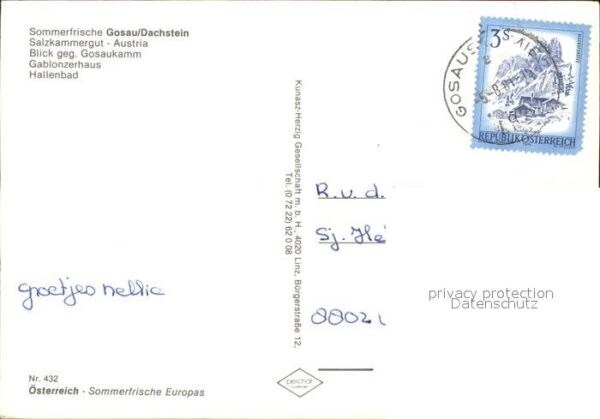 Sommerfrische Gosau/Dachstein
Salzkammergut · Austria
Blick geg. Gosaukamm
Gablonzerhaus
Hallenbad
3 S
REPUBLIK ÖSTERREICH
Kunasz-Herzig Gesellschaft m. b. H., 4020 Linz, Bürgerstraße 12,
Tel. (0 72 22) 62 0 08
R.v.d.
Sj. Hé
groetjes Nellie
privacy protection
Datenschutz
Nr. 432
Österreich · Sommerfrische Europas